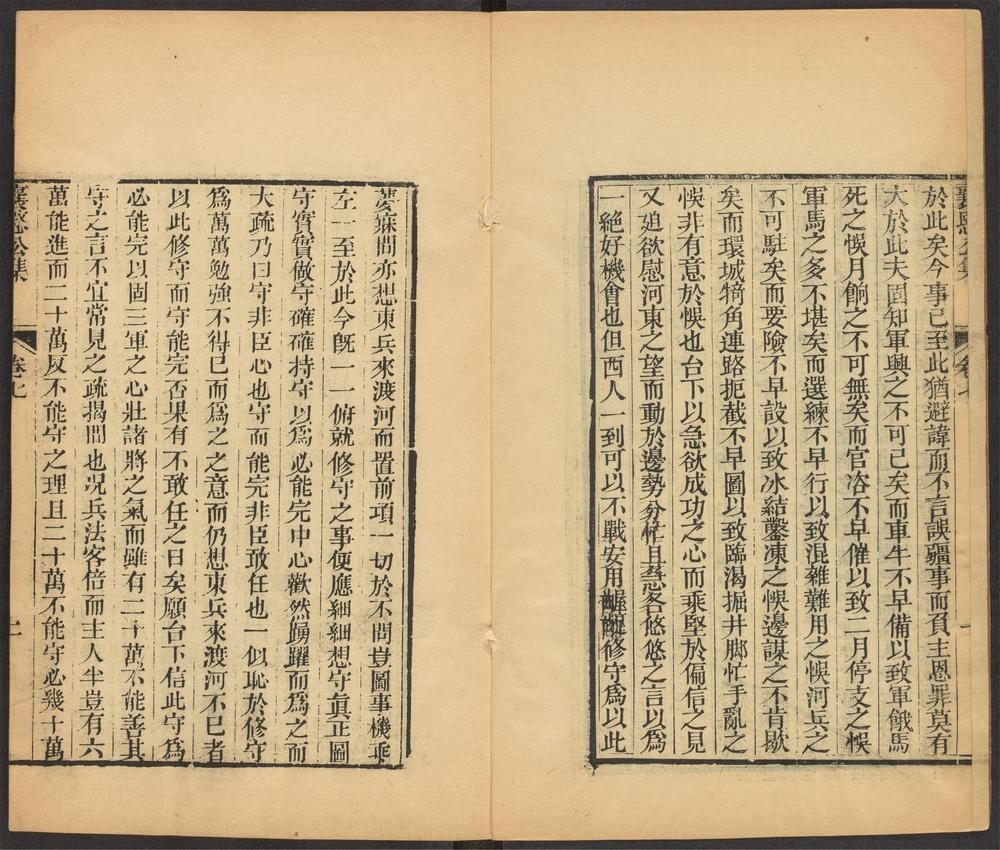 襄愍公集
卷七
一
於此矣今事已至此猶避諱而不言誤疆事而負主恩罪莫有
大於此夫固知軍興之不可已矣而車牛不早備以致軍餓馬
死之悞月餉之不可無矣而官帑不早催以致二月停支之悞
軍馬之多不堪矣而選練不早行以致混雜難用之悞河兵之
不可駐矣而要險不早設以致冰結鑿凍之悞邊謀之不肯歇
矣而環城犄角連路扼截不早圖以致臨渴掘井脚忙手亂之
悞非有意於悞也台下以急欲成功之心而乘堅於偏信之見
又廹欲慰河東之望而動於邊勢分忙且急各悠悠之言以為
一絕好機會也但西人一到可以不戰安用齷齪修守為以此
夢寐間亦想東兵來渡河而置前項一切於不問豈圖事機乖
左一至於此今旣一一俯就修守之事便應細細想守眞正圖
守實實做守確確持守以爲必能完中心歡然踴躍而爲之而
大疏乃曰守非臣心也守而能完非臣敢任也一似恥於修守
爲萬萬勉強不得已而爲之之意而仍想東兵來渡河不已者
以此修守而守能完否果有不敢任之日矣願台下信此守爲
必能完以固三軍之心壯諸將之氣而雖有二十萬不能善其
守之言不宜常見之疏揭間也况兵法客倍而主人半豈有六
萬能進而二十萬反不能守之理且二十萬不能守必幾十萬
襄愍公集
卷七
二